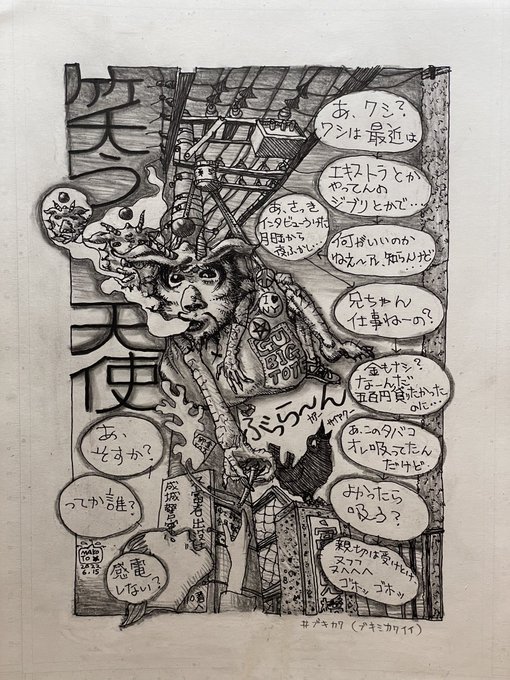 笑う
天使
あ、ワシ?
ワシは最近は
エキストラとか
やってんの
ジブリとかで…
あ、さっき
インタビューうけた
月曜から
夜ふかし…
何がいいのか
ねぇ〜アレ、知らんけど
兄ちゃん
仕事ねーの?
金もナシ?
なーんだ
五百円貸りたかった
のに…
GU
BIG
TOTE
ぶっら〜ん
あ、このタバコ
オレ吸ってたん
だけど
よかったら
吸う?
親切は受けとけ
ヌフフ
ヌヘヘヘ
ゴホッ ゴホッ
あ、
そすか?
ってか誰?
感電
しない?
成城警
MAKO
TO
2022
6.15
#ブキカワ(ブキミカワイイ)